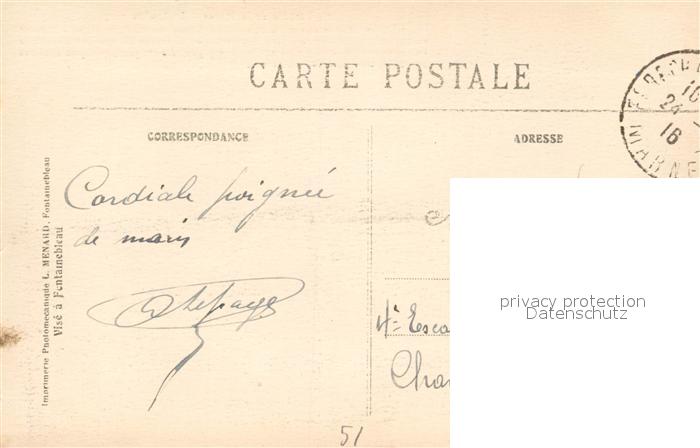 CARTE POSTALE
10
24
16
MARNE
CORRESPONDANCE
ADRESSE
Cordiale poignée
de mains
Lepage
4e Esca
Cha
privacy protection
Datenschutz
Imprimerie Photomecanique L. MENARD, Fontainebleau
Visé à Fontainebleau
51